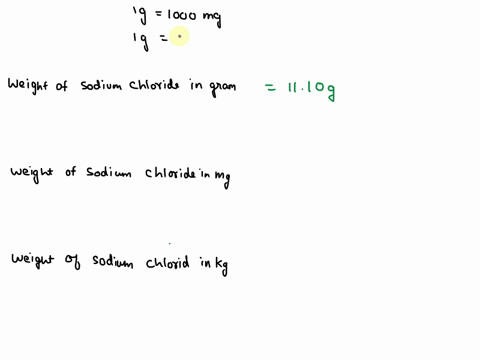 1g = 1000 mg
1g =
Weight of Sodium Chloride in gram = 11.10g
Weight of Sodium Chloride in mg
Weight of Sodium Chlorid in kg